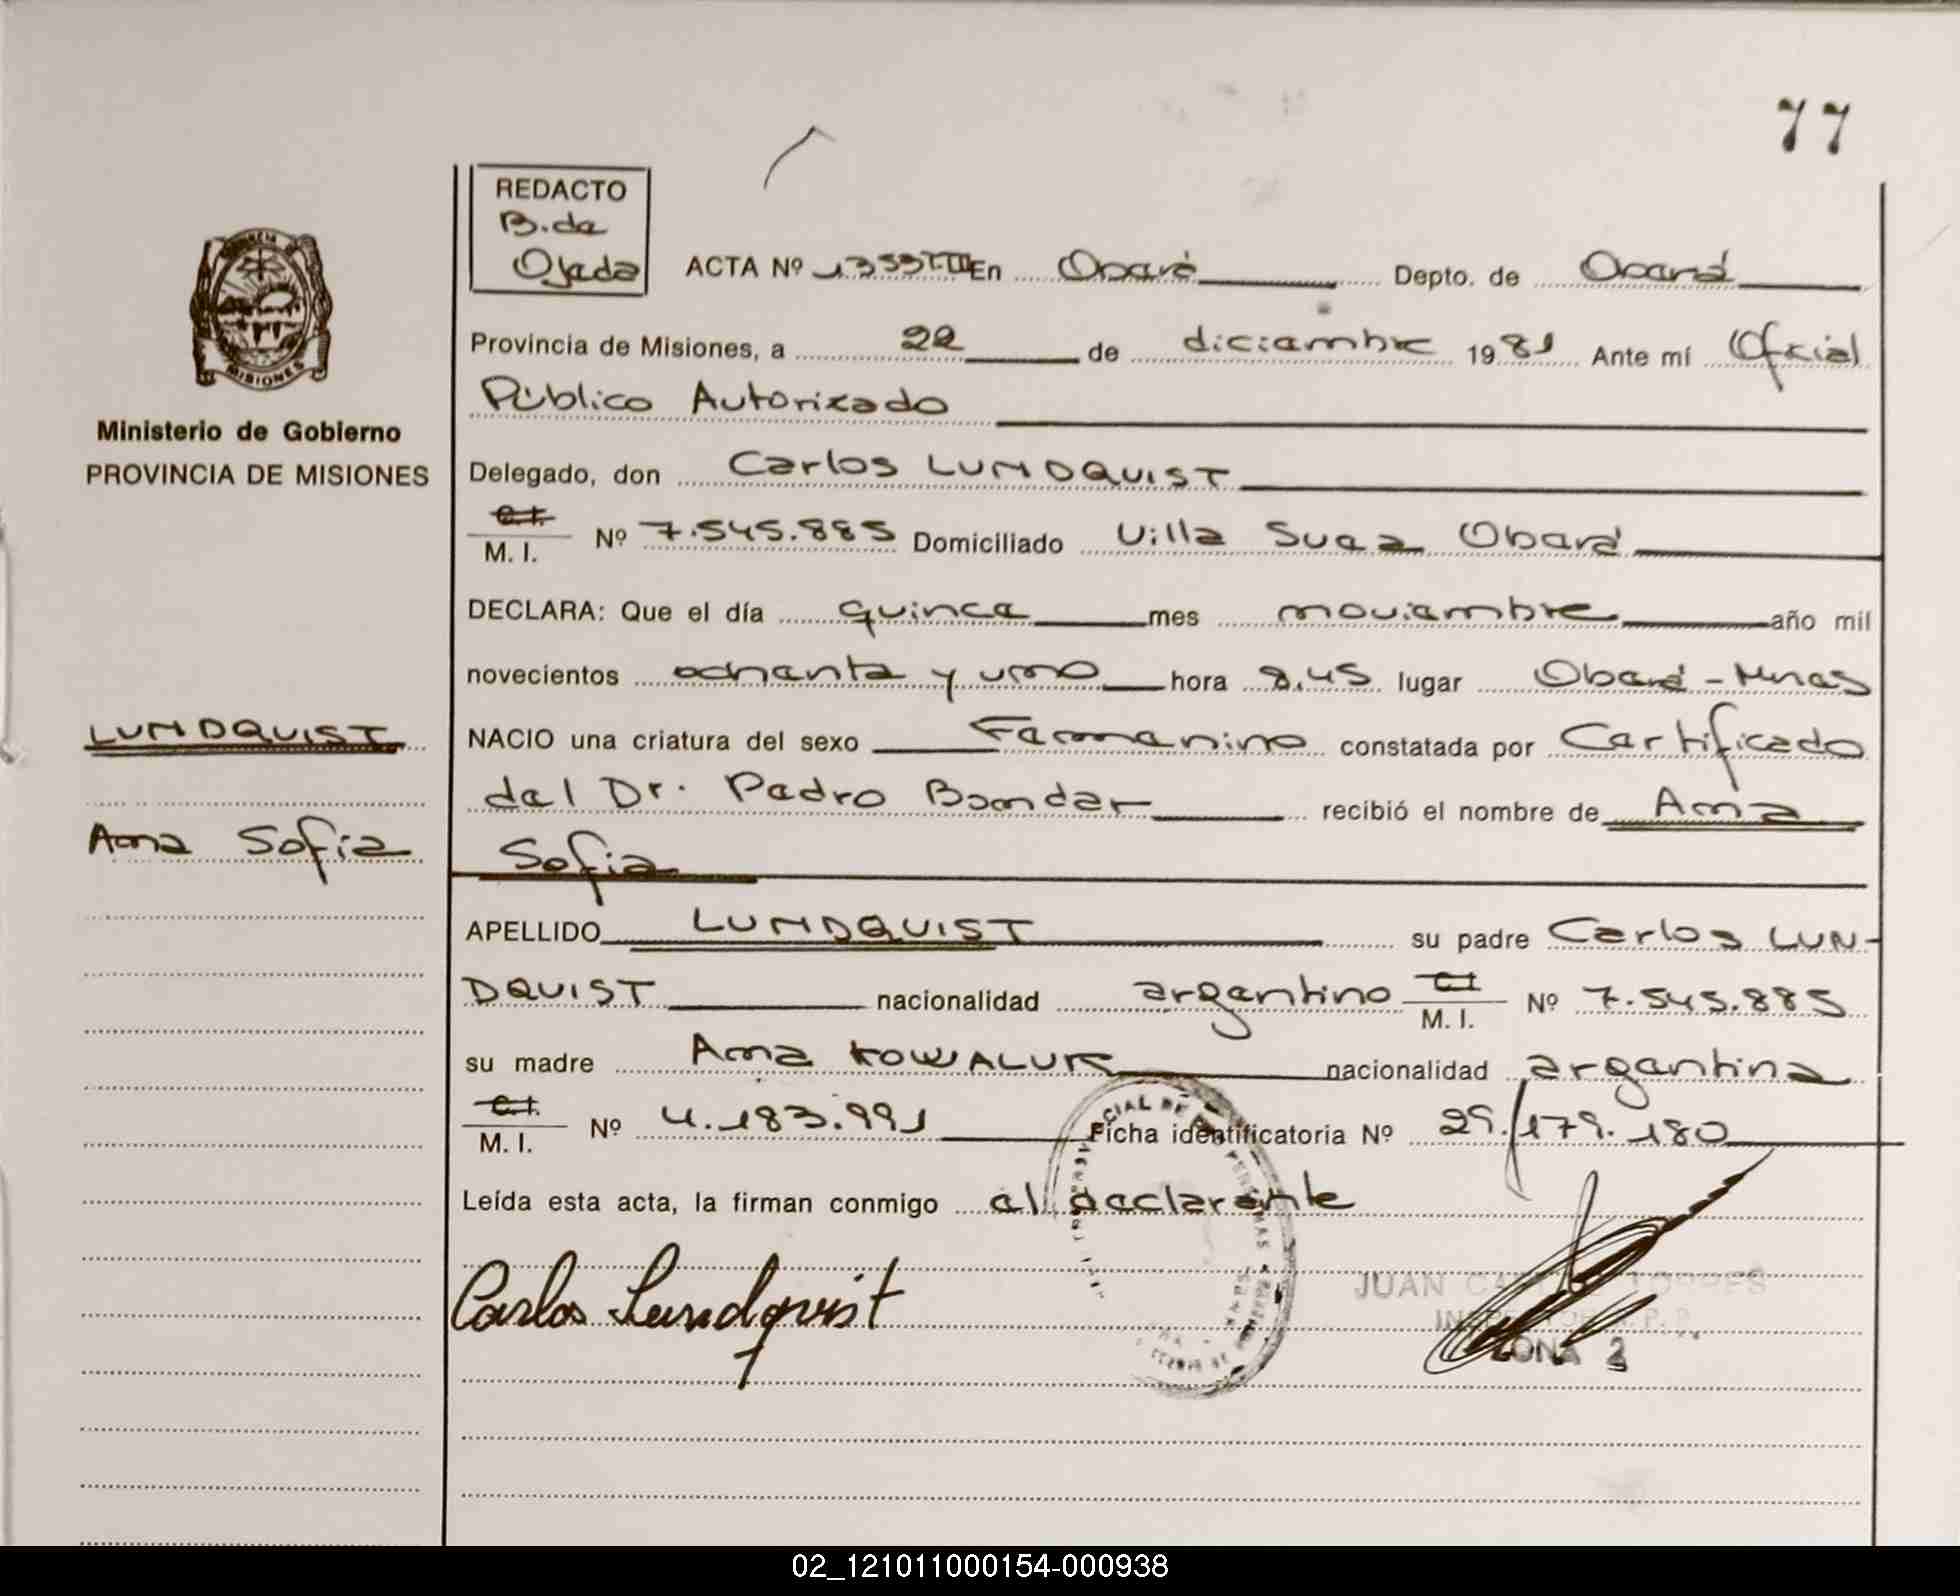 77
REDACTO
B. de
Ojeda
ACTA Nº 1353 TIII En Oberá Depto. de Oberá
Provincia de Misiones, a 22 de diciembre 1981 Ante mí Oficial
Público Autorizado
Ministerio de Gobierno
PROVINCIA DE MISIONES
MISIONES
Delegado, don Carlos LUNDQUIST
C.I.
M. I. Nº 7.545.885 Domiciliado Villa Svea Oberá
DECLARA: Que el día quince mes noviembre año mil
novecientos ochenta y uno hora 8,45 lugar Oberá - Mnes
LUNDQUIST
NACIO una criatura del sexo Femenino constatada por Certificado
del Dr. Pedro Bondar recibió el nombre de Ana
Ana Sofia
Sofia
APELLIDO LUNDQUIST su padre Carlos LUN-
DQUIST nacionalidad argentino C.I.
M. I. Nº 7.545.885
su madre Ana KOWALUK nacionalidad argentina
C.I.
M. I. Nº 4.183.991 Ficha identificatoria Nº 29./179.180
Leída esta acta, la firman conmigo el declarante
Carlos Lundquist
JUAN
ZONA 2
02_121011000154-000938